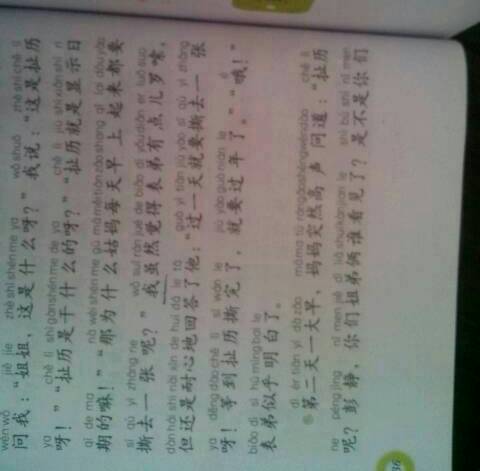 wèn wǒ jiě jie zhè shì shén me ya wǒ shuō zhè shì chě lì
问我：“姐姐，这是什么呀？”我说：“这是扯历
ya chě lì shì gàn shén me de ya chě lì jiù shì xiǎn shì rì
呀！”“扯历是干什么的呀？”“扯历就是显示日
qī de ma nà wèi shén me gū mā měi tiān zǎo shang qǐ lai dōu yào
期的嘛！”“那为什么姑妈每天早上起来都要
sī qù yì zhāng ne wǒ suī rán jué de biǎo dì yǒu diǎn er luō suo
撕去一张呢？”我虽然觉得表弟有点儿罗嗦，
dàn hái shi nài xīn de huí dá le tā guò yì tiān jiù yào sī qù yì zhāng
但还是耐心地回答了他：“过一天就要撕去一张
ya děng dào chě lì sī wán le jiù yào guò nián le é
呀！等到扯历撕完了，就要过年了。”“哦！”
biǎo dì sì hū míng bai le
表弟似乎明白了。
dì èr tiān yí dà zǎo mā ma tū rán gāo shēng wèn dào chě lì
第二天一大早，妈妈突然高声问道：“扯历
ne péng jìng nǐ men jiě dì liǎ shuí kàn jiàn le shì bú shì nǐ men
呢？彭静，你们姐弟俩谁看见了？是不是你们